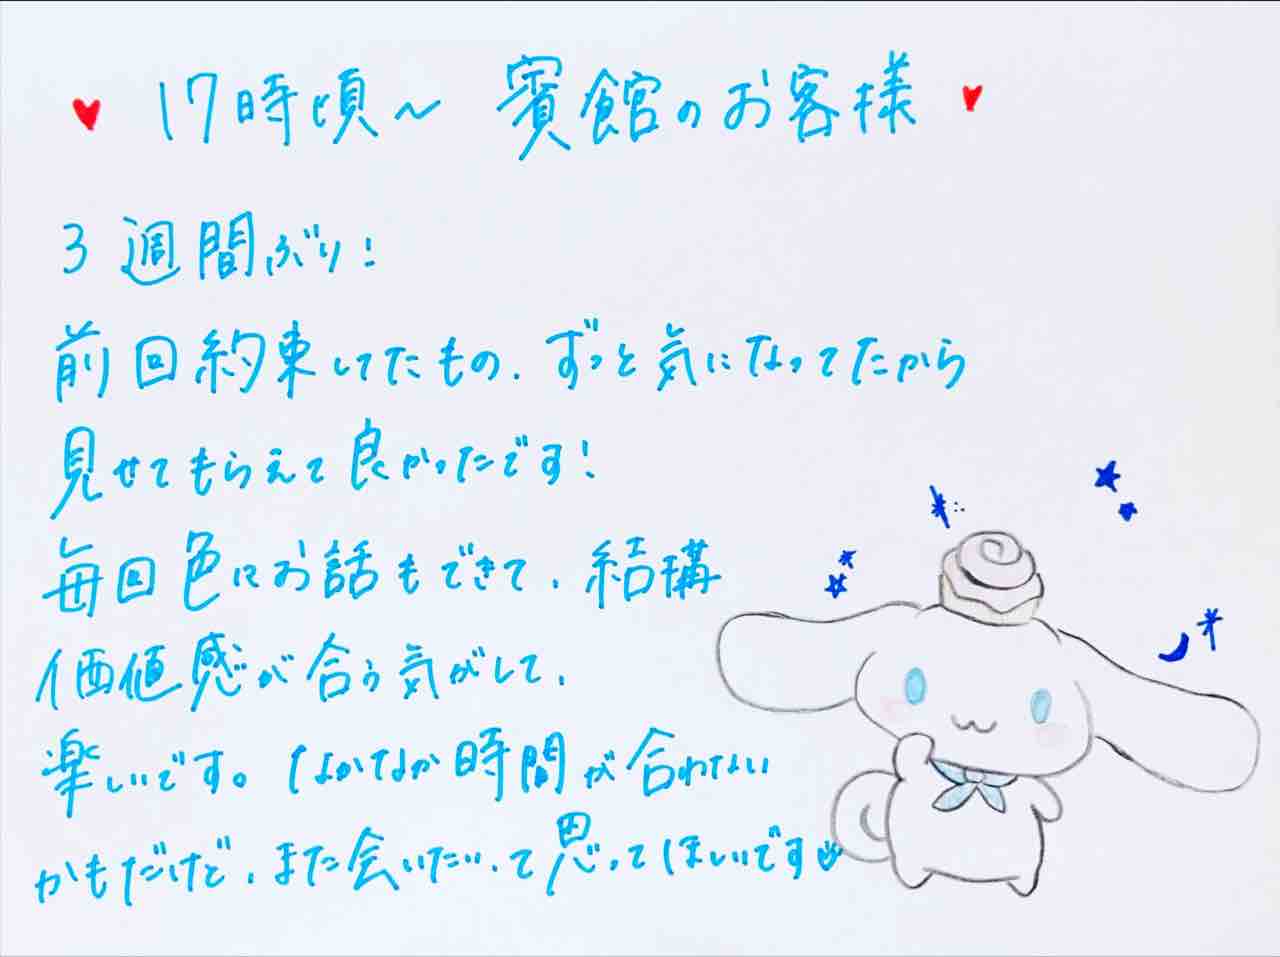 ♥ 17時頃～ 賓館のお客様 ♥
3週間ぶり!
前回約束してたもの、ずっと気になってたから
見せてもらえて良かったです!
毎回色にお話もできて、結構
価値感が合う気がして、
楽しいです。なかなか時間が合わない
かもだけど、また会いたいって思ってほしいです♥